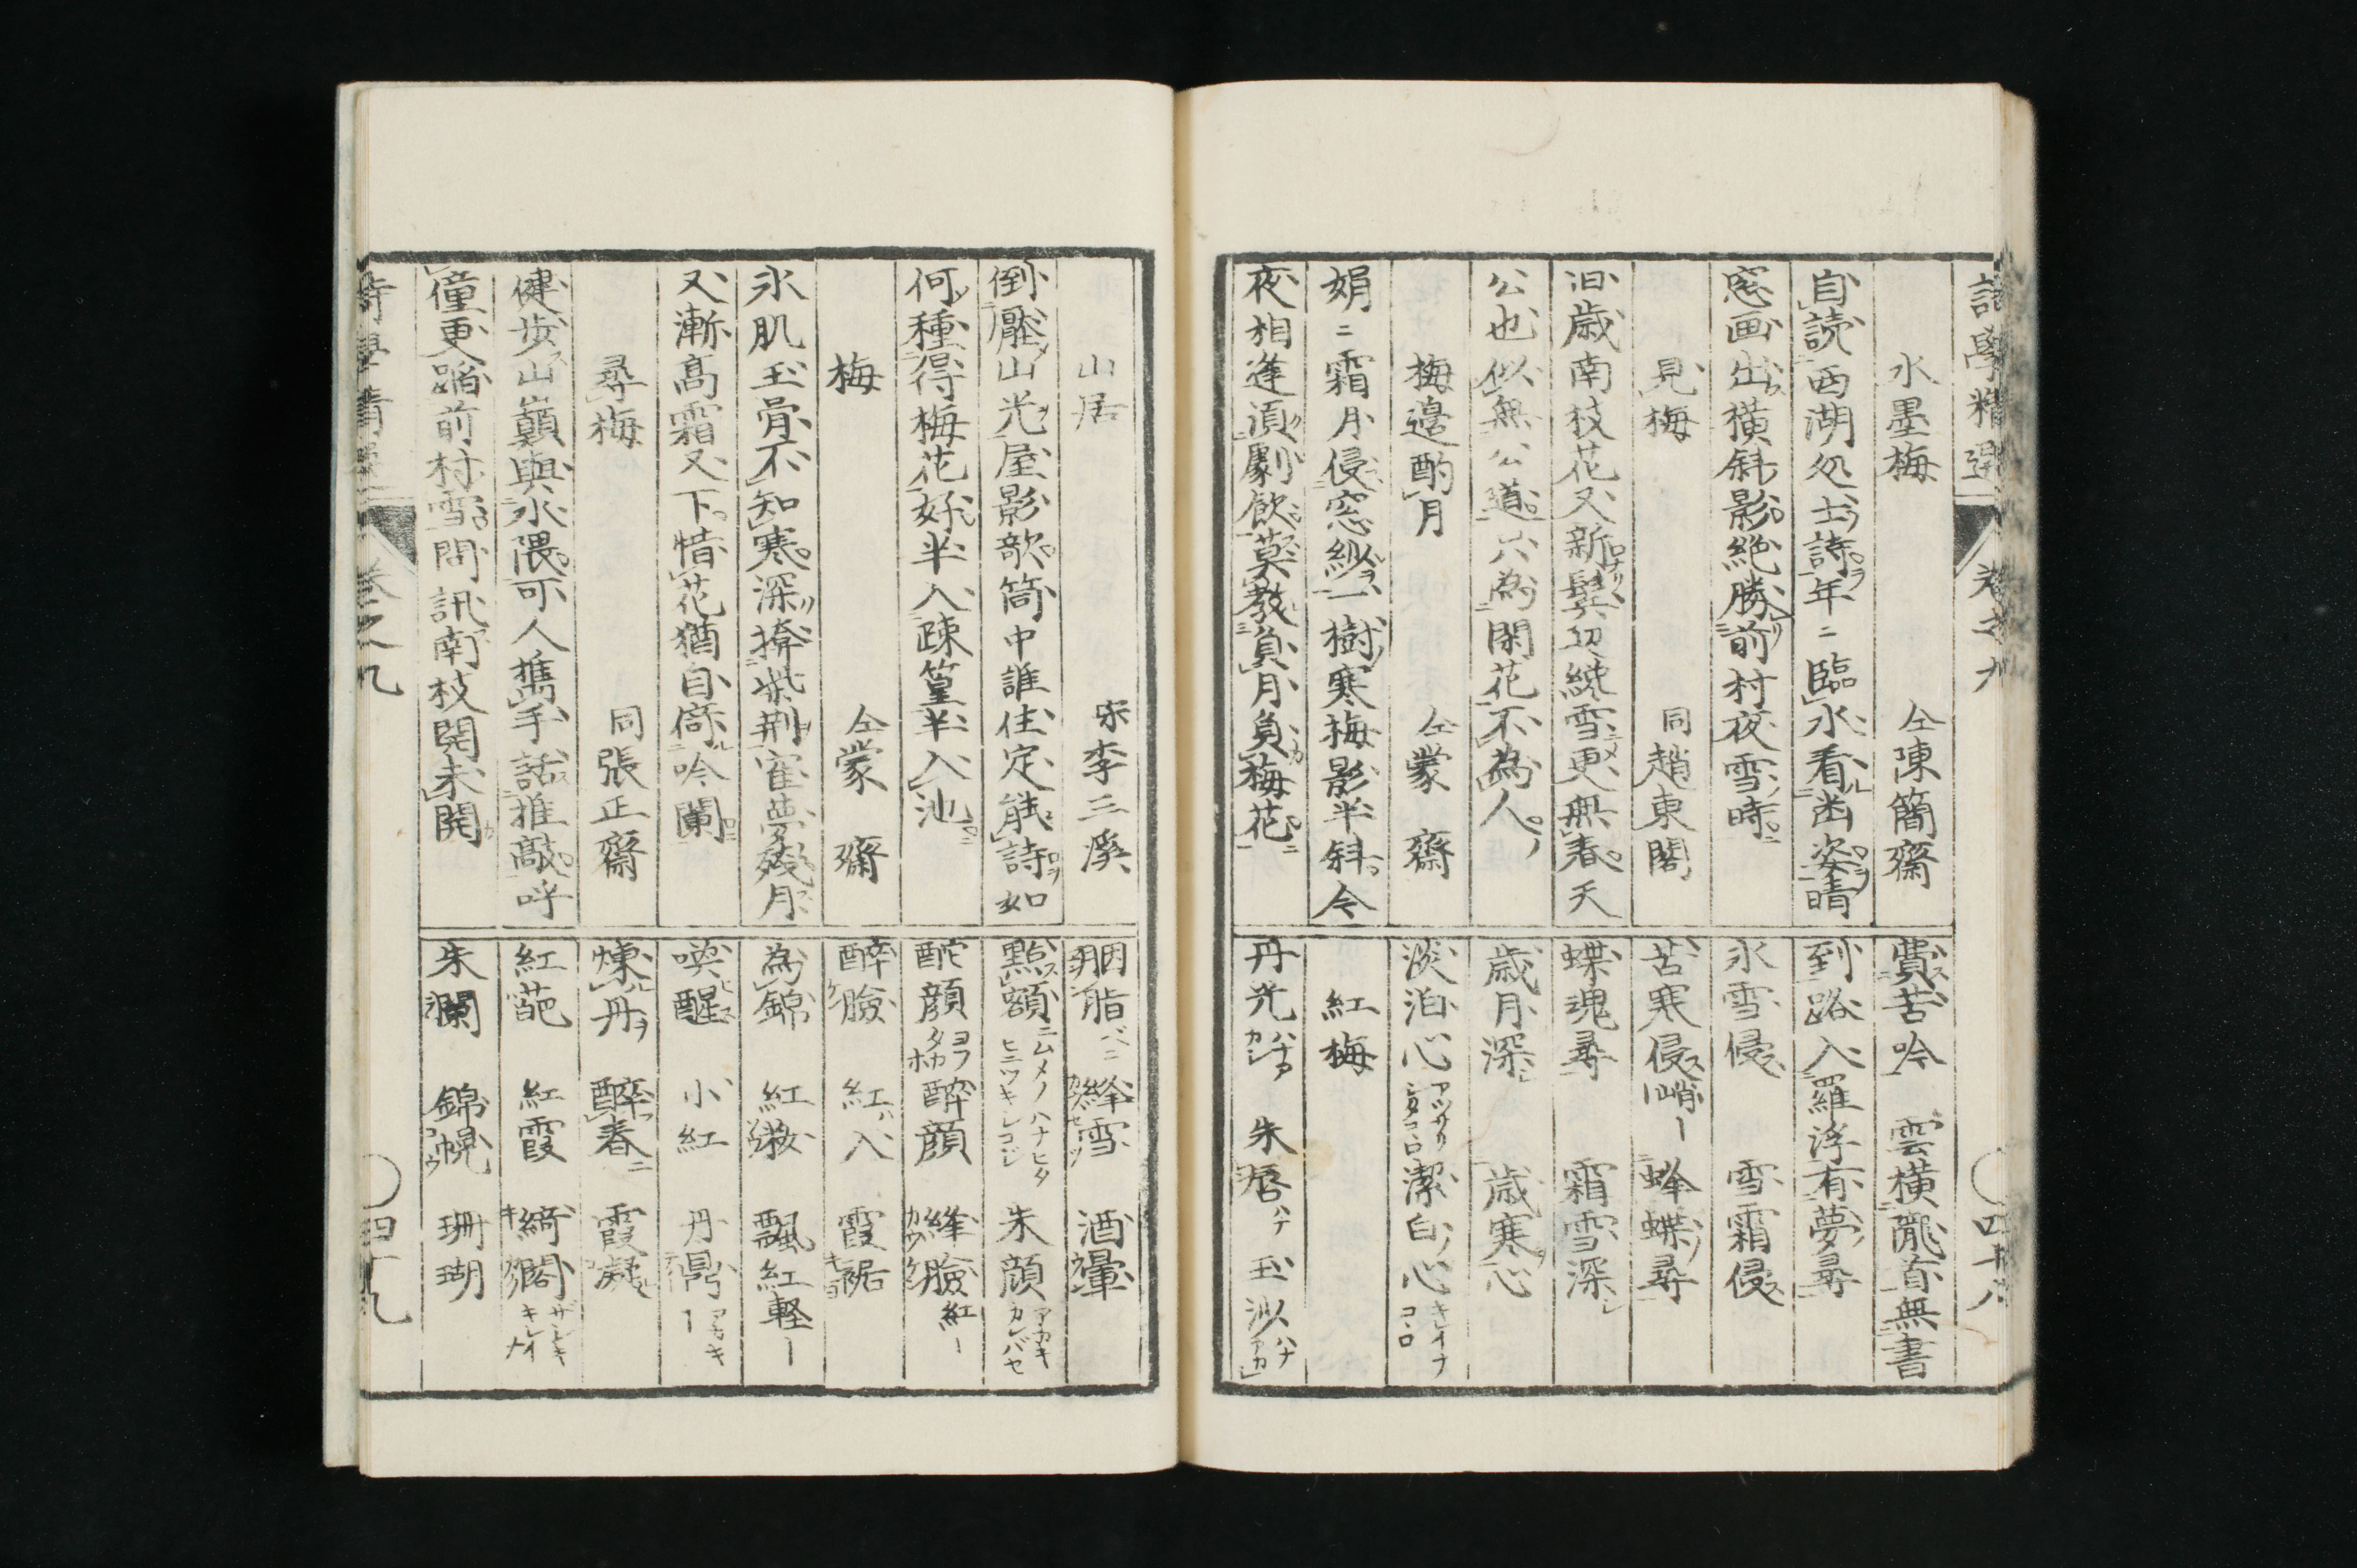 水墨梅　仝陳簡齋
自読西湖処士詩年ニ臨水看幽姿晴
窓画出横斜影絶勝前村夜雪時
見梅　同趙東閣
旧歳南枝花又新鬂辺繞雪更無春天
公也似無公道只為閑花不為人
梅邉酌月　仝蒙齋
娟ニ霜月侵窓紗一樹寒梅影半斜今
夜相逢須劇飲莫教負月負梅花
費苦吟　雲横隴首無書
到路入羅浮有夢尋
氷雪侵　雪霜侵
苦寒侵峭｜　蜂蝶尋
蝶魂尋　霜雪深
歳月深　歳寒心
淡泊心　潔白心
紅梅
丹光　朱唇　玉沙
山居　宋李三溪
倒靨山光屋影欹筒中誰住定能詩如
何種得梅花好半入疎篁半入池
梅　仝蒙齋
氷肌玉骨不知寒深擁柴荆寉夢残月
又漸高霜又下惜花猶自倚吟闌
尋梅　同張正齋
健歩山巔與氷隈可人携手話推敲呼
僮更踏前村雪問訊南枝開未開
胭脂　絳雪　酒暈
點額　朱顔
酡顔　醉顔　絳臉紅｜
醉臉　紅入　霞裾
為錦　紅妝　飄紅軽｜
喚醒　小紅　丹鼎
煉丹　醉春　霞凝
紅葩　紅霞　綺閣
朱欄　錦幌　珊瑚
卷之九
四十九